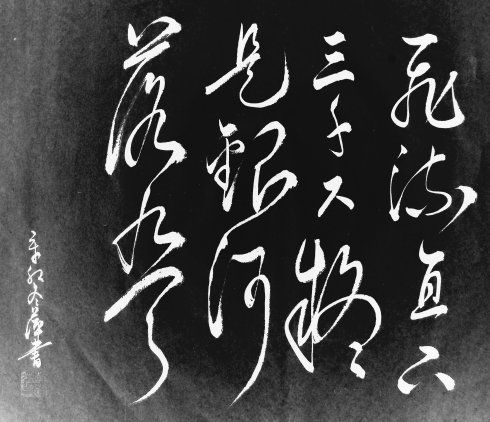 飛流直下
三千尺疑
是銀河
落九天
辛卯冬書